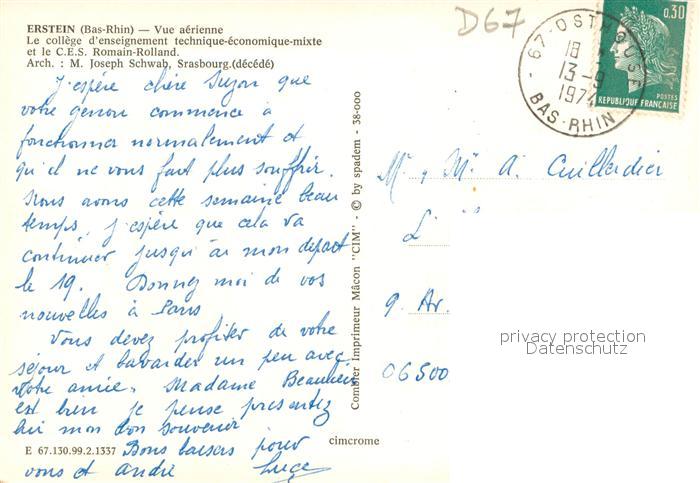 ERSTEIN (Bas-Rhin) — Vue aérienne
Le collège d'enseignement technique-économique-mixte
et le C.E.S. Romain-Rolland.
Arch. : M. Joseph Schwab, Srasbourg.(décédé)
D67
67-OSTHOUSE
18
13-9
1974
BAS-RHIN
0,30
POSTES
REPUBLIQUE FRANÇAISE
J'espère chère Suzon que
votre genou commence à
fonctionner normalement et
qu'il ne vous fait plus souffrir.
Nous avons cette semaine beau
temps, j'espère que cela va
continuer jusqu'à mon départ
le 19. Donnez moi de vos
nouvelles à Paris
Vous devez profiter de votre
séjour et bavarder un peu avec
votre amie. Madame
est bien je pense présentez
lui mon bon souvenir
Bons baisers pour
vous et André
E 67.130.99.2.1337
cimcrome
Combier Imprimeur Mâcon "CIM" - © by spadem - 38-000
Mr, Me A. Cuillerdier
L
9 Av.
06500
privacy protection
Datenschutz